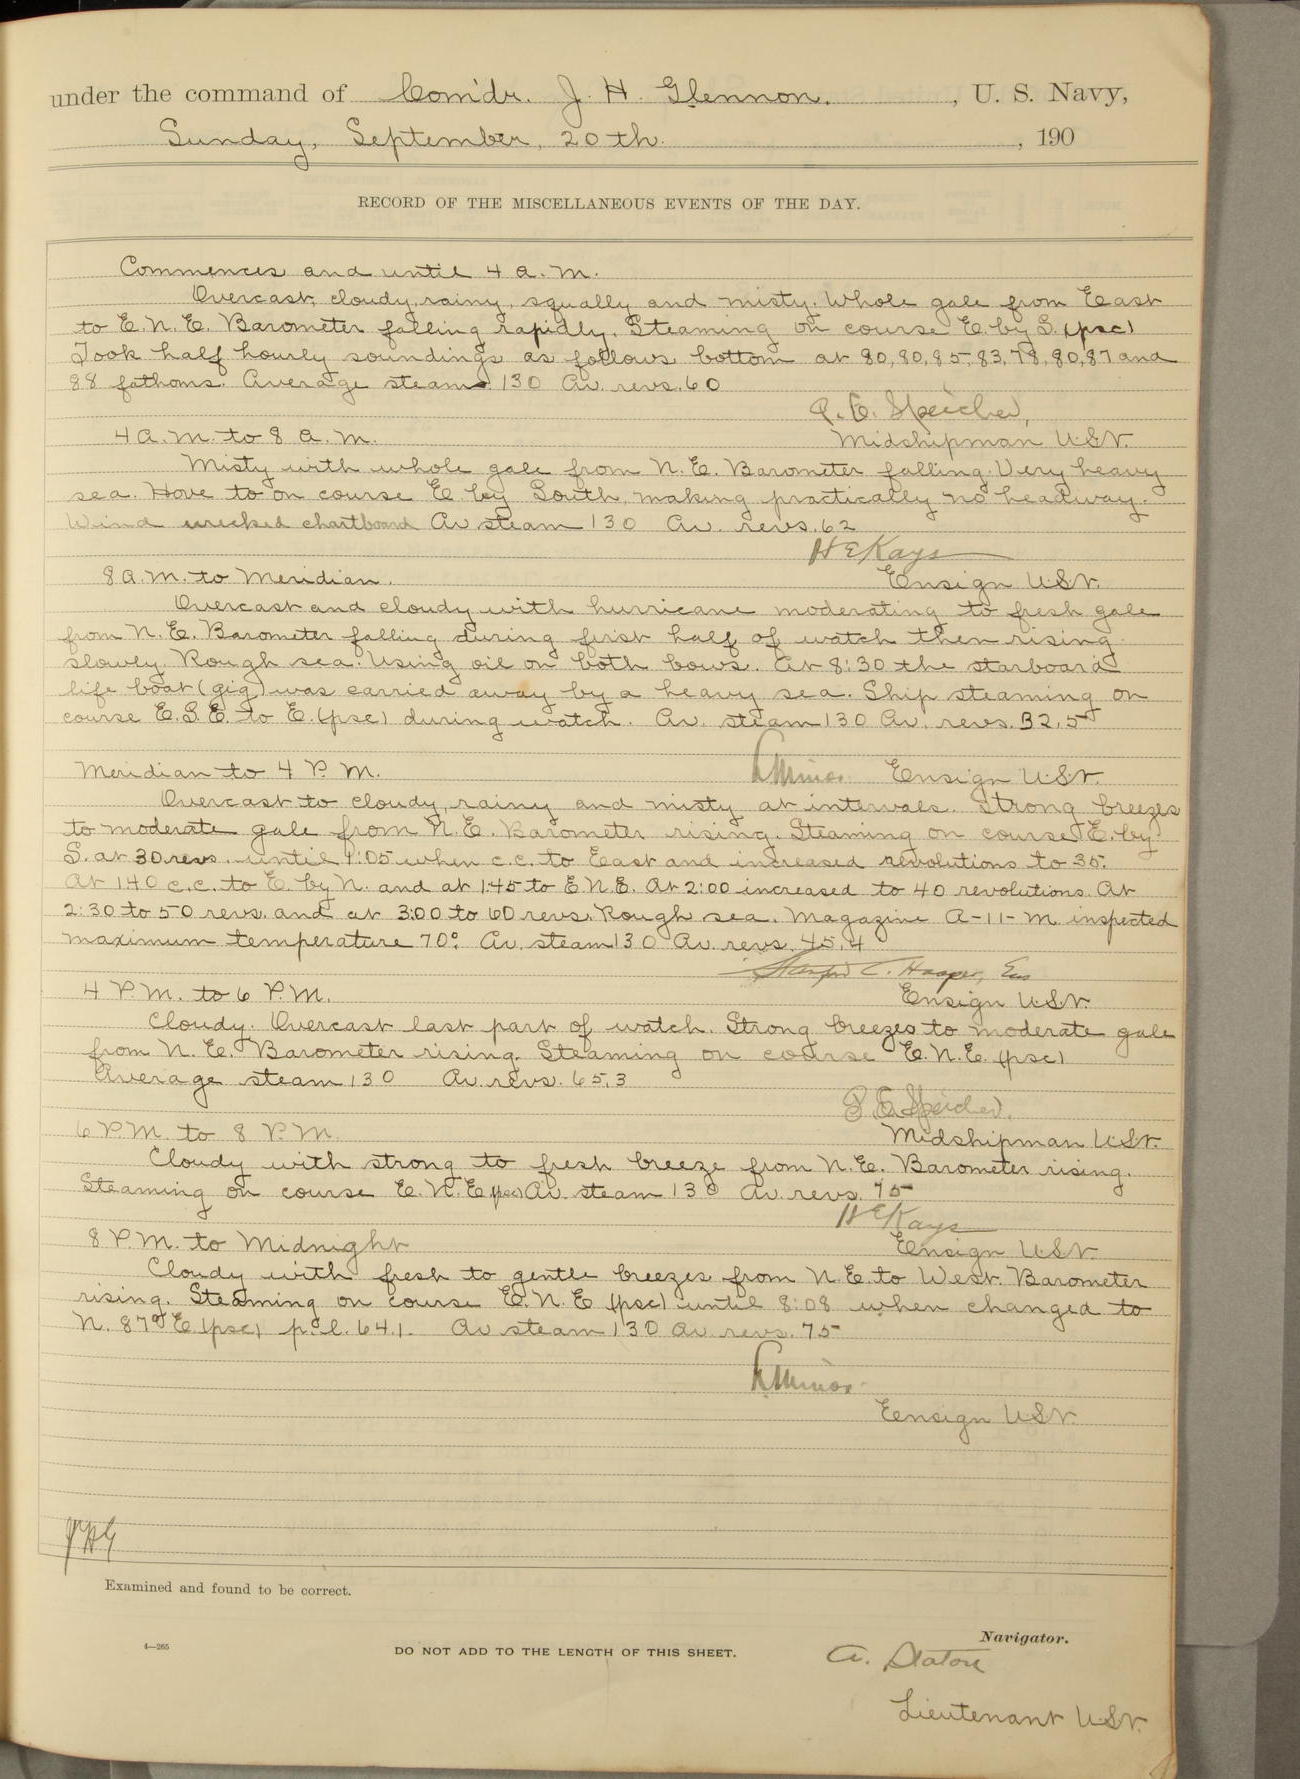 under the command of Com'dr. J. H. Glennon. , U. S. Navy,
Sunday, September, 20th. , 190
RECORD OF THE MISCELLANEOUS EVENTS OF THE DAY.
Commences and until 4 a.m.
Overcast, cloudy, rainy, squally and misty. Whole gale from East
to E.N.E. Barometer falling rapidly. Steaming on course E. by S. (psc)
Took half hourly soundings as follows bottom at 80, 80, 85, 83, 78, 80, 87 and
88 fathoms. Average steam 130 Av. revs. 60
P. E. Speicher,
4 a.m. to 8 a.m. Midshipman U.S.N.
Misty with whole gale from N.E. Barometer falling. Very heavy
sea. Hove to on course E by South, making practically no headway.
Wind wrecked chartboard Av steam 130 Av. revs. 62
H E Kays
8 a.m. to Meridian. Ensign U.S.N.
Overcast and cloudy with hurricane moderating to fresh gale
from N.E. Barometer falling during first half of watch then rising
slowly. Rough sea. Using oil on both bows. At 8:30 the starboard
life boat (gig) was carried away by a heavy sea. Ship steaming on
course E.S.E. to E. (psc) during watch. Av. steam 130 Av. revs. 32.5
Meridian to 4 P.M. Ensign U.S.N.
Overcast to cloudy, rainy and misty at intervals. Strong breezes
to moderate gale from N.E. Barometer rising. Steaming on course E. by
S. at 30 revs. until 1:05 when c.c. to East and increased revolutions to 35.
At 1:40 c.c. to E. by N. and at 1:45 to E.N.E. At 2:00 increased to 40 revolutions. At
2:30 to 50 revs. and at 3:00 to 60 revs. Rough sea. Magazine A-11-M inspected
maximum temperature 70°. Av. steam 130 Av. revs. 45.4
Stanford C. Hooper,
4 P.M. to 6 P.M. Ensign U.S.N.
Cloudy. Overcast last part of watch. Strong breezes to moderate gale
from N.E. Barometer rising. Steaming on course E.N.E. (psc)
Average steam 130 Av. revs. 65.3
P. E. Speicher.
6 P.M. to 8 P.M. Midshipman U.S.N.
Cloudy with strong to fresh breeze from N.E. Barometer rising.
Steaming on course E.N.E (psc) Av. steam 130 Av. revs. 75
H E Kays
8 P.M. to Midnight Ensign U.S.N.
Cloudy with fresh to gentle breezes from N.E. to West. Barometer
rising. Steaming on course E.N.E (psc) until 8:08 when changed to
N. 87° E (psc) p.l. 64.1. Av steam 130 Av. revs. 75
Ensign U.S.N.
JHG
Examined and found to be correct.
Navigator.
4—265
DO NOT ADD TO THE LENGTH OF THIS SHEET.
A. Staton
Lieutenant U.S.N.